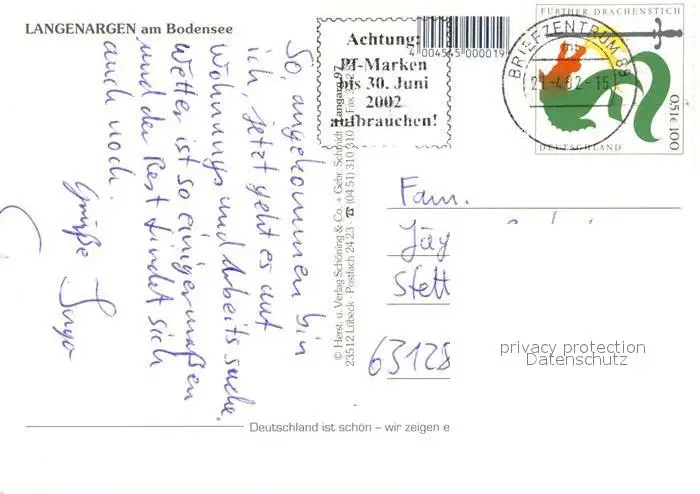 LANGENARGEN am Bodensee
So, angekommen bin
ich, jetzt geht es auf
Wohnungs und Arbeits suche.
Wetter ist so einigermaßen
und der Rest findet sich
auch noch.
Grüße Ingo
Achtung:
Pf-Marken
bis 30. Juni
2002
aufbrauchen!
4 004545 000019
BRIEFZENTRUM 88
mb
FURTHER DRACHENSTICH
0,51€ 100
DEUTSCHLAND
© Herst. u. Verlag Schöning & Co. + Gebr. Schmidt
23512 Lübeck · Postfach 24 23 · ☎ (04 51) 310 310
Fam.
Jäy
Stett
63128
privacy protection
Datenschutz
Deutschland ist schön – wir zeigen e